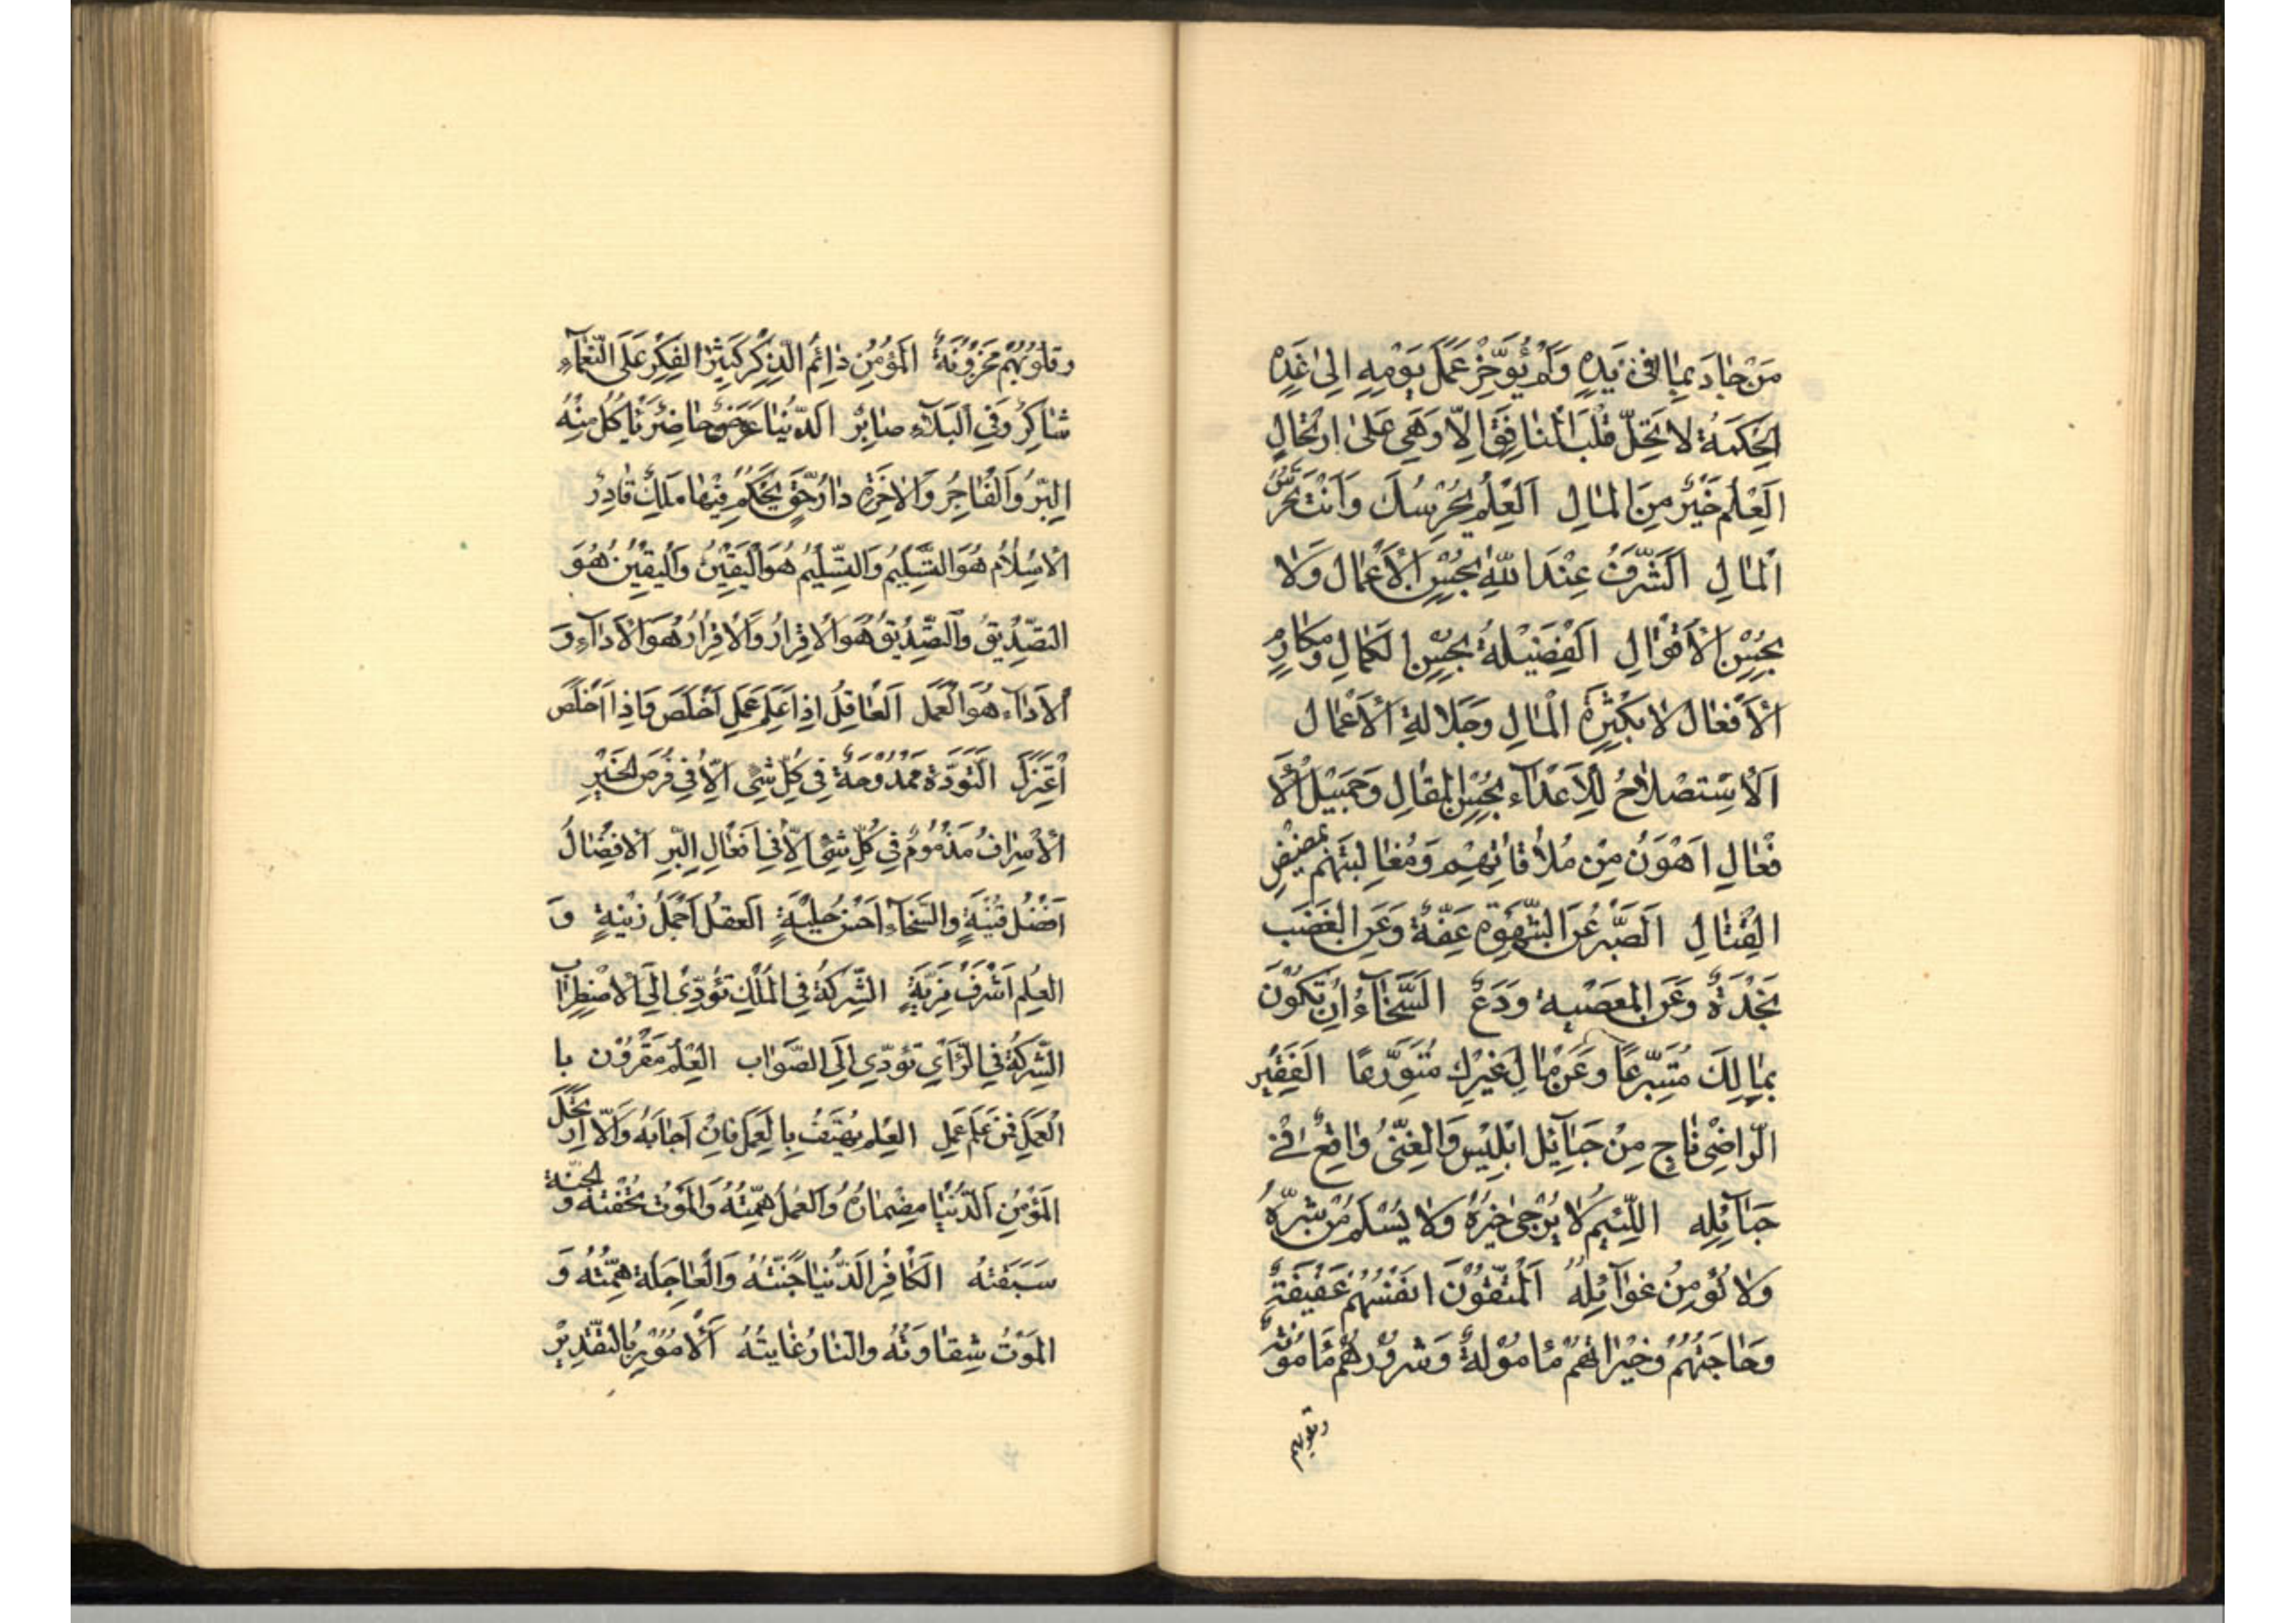 مَنْ جٰادَ بِمٰا فِىْ يَدِهِ وَلَمْ يُؤَخِّرْ عَمَلَ يَوْمِهِ اِلىٰ غَدِهِ
اَلْحِكْمَةُ لاٰ تَحِلُّ قَلْبَ الْمُنٰافِقِ اِلاّٰ وَهِىَ عَلىٰ ارْتِحٰالٍ
اَلْعِلْمُ خَيْرٌ مِنَ الْمٰالِ اَلْعِلْمُ يَحْرُسُكَ وَاَنْتَ تَحْرُسُ
اَلْمٰالِ اَلشَّرَفُ عِنْدَ اللّٰهِ بِحُسْنِ الْاَعْمٰالِ وَلاٰ
بِحُسْنِ الْاَقْوٰالِ اَلْفَضِيْلَةُ بِحُسْنِ الْكَمٰالِ وَمَكٰارِمِ
الْاَفْعٰالِ لاٰ بِكَثْرَةِ الْمٰالِ وَجَلاٰلَةِ الْاَعْمٰالِ
اَلْاِسْتِصْلاٰحُ لِلْاَعْدٰاءِ بِحُسْنِ الْمَقٰالِ وَجَمِيْلِ الْاَ
فْعٰالِ اَهْوَنُ مِنْ مُلاٰقٰاتِهِمْ وَمُغٰالَبَتِهِمْ بِمَضِيْضِ
الْقِتٰالِ اَلصَّبْرُ عَنِ الشَّهْوَةِ عِفَّةٌ وَعَنِ الْغَضَبِ
نَجْدَةٌ وَعَنِ الْمَعْصِيَةِ وَرَعٌ اَلسَّخٰاءُ اَنْ تَكُوْنَ
بِمٰالِكَ مُتَبَرِّعًا وَعَنْ مٰالِ غَيْرِكَ مُتَوَرِّعًا اَلْفَقِيْرُ
الرّٰاضِىْ نٰاجٍ مِنْ حَبٰآئِلِ اِبْلِيْسَ وَالْغَنِىُّ وٰاقِعٌ فِىْ
حَبٰآئِلِهِ اَللَّئِيْمُ لاٰ يُرْجىٰ خَيْرُهُ وَلاٰ يُسْلَمُ مِنْ شَرِّهِ
وَلاٰ يُؤْمَنُ غَوٰآئِلُهُ اَلْمُتَّقُوْنَ اَنْفُسُهُمْ عَفِيْفَةٌ
وَحٰاجَتُهُمْ وَخَيْرٰاتُهُمْ مَأْمُوْلَةٌ وَشُرُوْرُهُمْ مَأْمُوْنَةٌ
وقلوبهم
وَقُلُوْبُهُمْ مَحْزُوْنَةٌ اَلْمُؤْمِنُ دٰائِمُ الذِّكْرِ كَثِيْرُ الْفِكْرِ عَلَى النَّعْمٰآءِ
شٰاكِرٌ وَفِى الْبَلآٰءِ صٰابِرٌ اَلدُّنْيٰا عَرَضٌ حٰاضِرٌ يَأْكُلُ مِنْهُ
الْبِرُّ وَالْفٰاجِرُ وَالْاٰخِرَةُ دٰارُ حَقٍّ يَحْكُمُ فِيْهٰا مَلِكٌ قٰادِرٌ
اَلْاِسْلٰامُ هُوَ التَّسْلِيْمُ وَالتَّسْلِيْمُ هُوَ الْيَقِيْنُ وَالْيَقِيْنُ هُوَ
التَّصْدِيْقُ وَالتَّصْدِيْقُ هُوَ الْاِقْرٰارُ وَالْاِقْرٰارُ هُوَ الْاَدٰآءُ وَ
الْاَدٰآءُ هُوَ الْعَمَلُ اَلْعٰاقِلُ اِذٰا عَلِمَ عَمِلَ اَخْلَصَ وَاِذٰا اَخْلَصَ
اعْتَزَلَ اَلتُّؤَدَةُ مَمْدُوْحَةٌ فِىْ كُلِّ شَىْءٍ اِلاّٰ فِىْ فُرَصِ الْخَيْرِ
اَلْاِسْرٰافُ مَذْمُوْمٌ فِىْ كُلِّ شَىْءٍ اِلاّٰ فِىْ اَفْعٰالِ الْبِرِّ اَلْاِفْضٰالُ
اَفْضَلُ قِنْيَةٍ وَالسَّخٰآءُ اَحْسَنُ حِلْيَةٍ اَلْعَقْلُ اَجْمَلُ زِيْنَةٍ وَ
الْعِلْمُ اَشْرَفُ مَزِيَّةٍ اَلشِّرْكَةُ فِى الْمُلْكِ تُؤَدِّىْ اِلَى الْاِضْطِرٰابِ
اَلشِّرْكَةُ فِى الرَّأْىِ تُؤَدِّىْ اِلَى الصَّوٰابِ اَلْعِلْمُ مَقْرُوْنٌ بِا
لْعَمَلِ فَمَنْ عَلِمَ عَمِلَ اَلْعِلْمُ يَهْتِفُ بِالْعَمَلِ فَاِنْ اَجٰابَهُ وَاِلاّٰ ارْتَحَلَ
اَلْمُؤْمِنُ اَلدُّنْيٰا مِضْمٰارُهُ وَالْعَمَلُ هِمَّتُهُ وَالْمَوْتُ تُحْفَتُهُ وَالْجَنَّةُ
سَبَقَتُهُ اَلْكٰافِرُ الدُّنْيٰا جَنَّتُهُ وَالْعٰاجِلَةُ هِمَّتُهُ وَ
الْمَوْتُ شِقٰاوَتُهُ وَالنّٰارُ غٰايَتُهُ اَلْاُمُوْرُ بِالتَّقْدِيْرِ